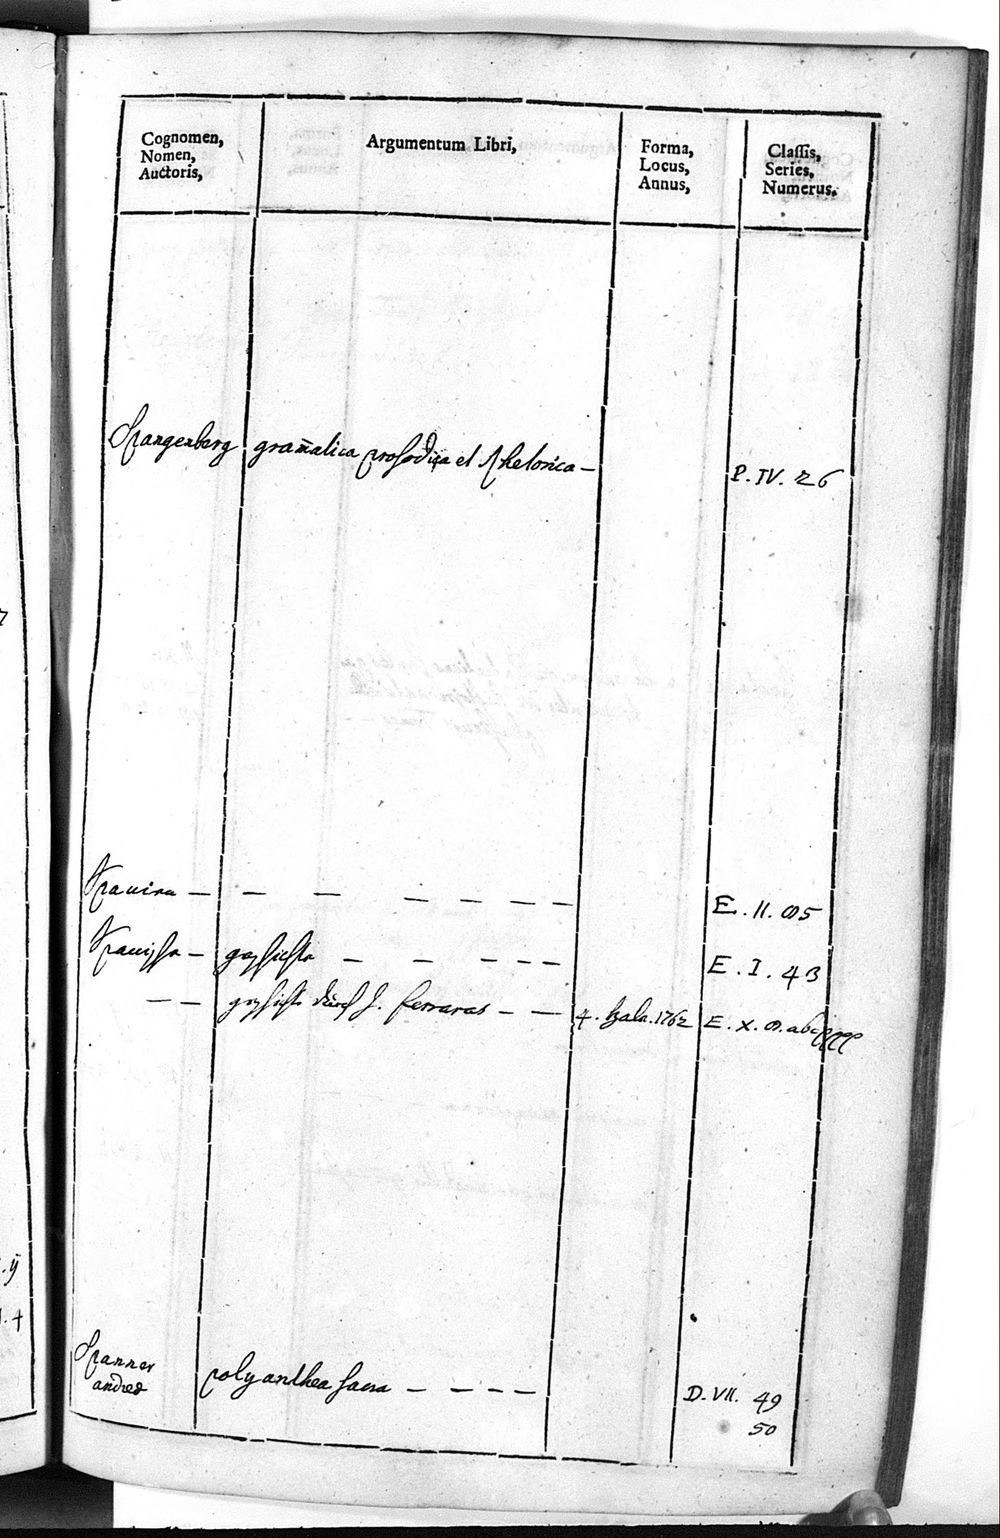 Cognomen,
Nomen,
Auctoris,
Argumentum Libri,
Forma,
Locus,
Annus,
Classis,
Series,
Numerus.
Spangenberg gram̄atica prosodica et Rhetorica —
P. IV. 26
Spanien — — — — — — —
E. II. 85
Spanische — geschichte — — — — —
E. I. 43
— — geschichte durch J. ferraras — — 4. hala. 1762 E. X. 8. abc
Spanner
andreas
polyanthea sacra — — — — —
D. VII. 49
50
.ÿ
.4